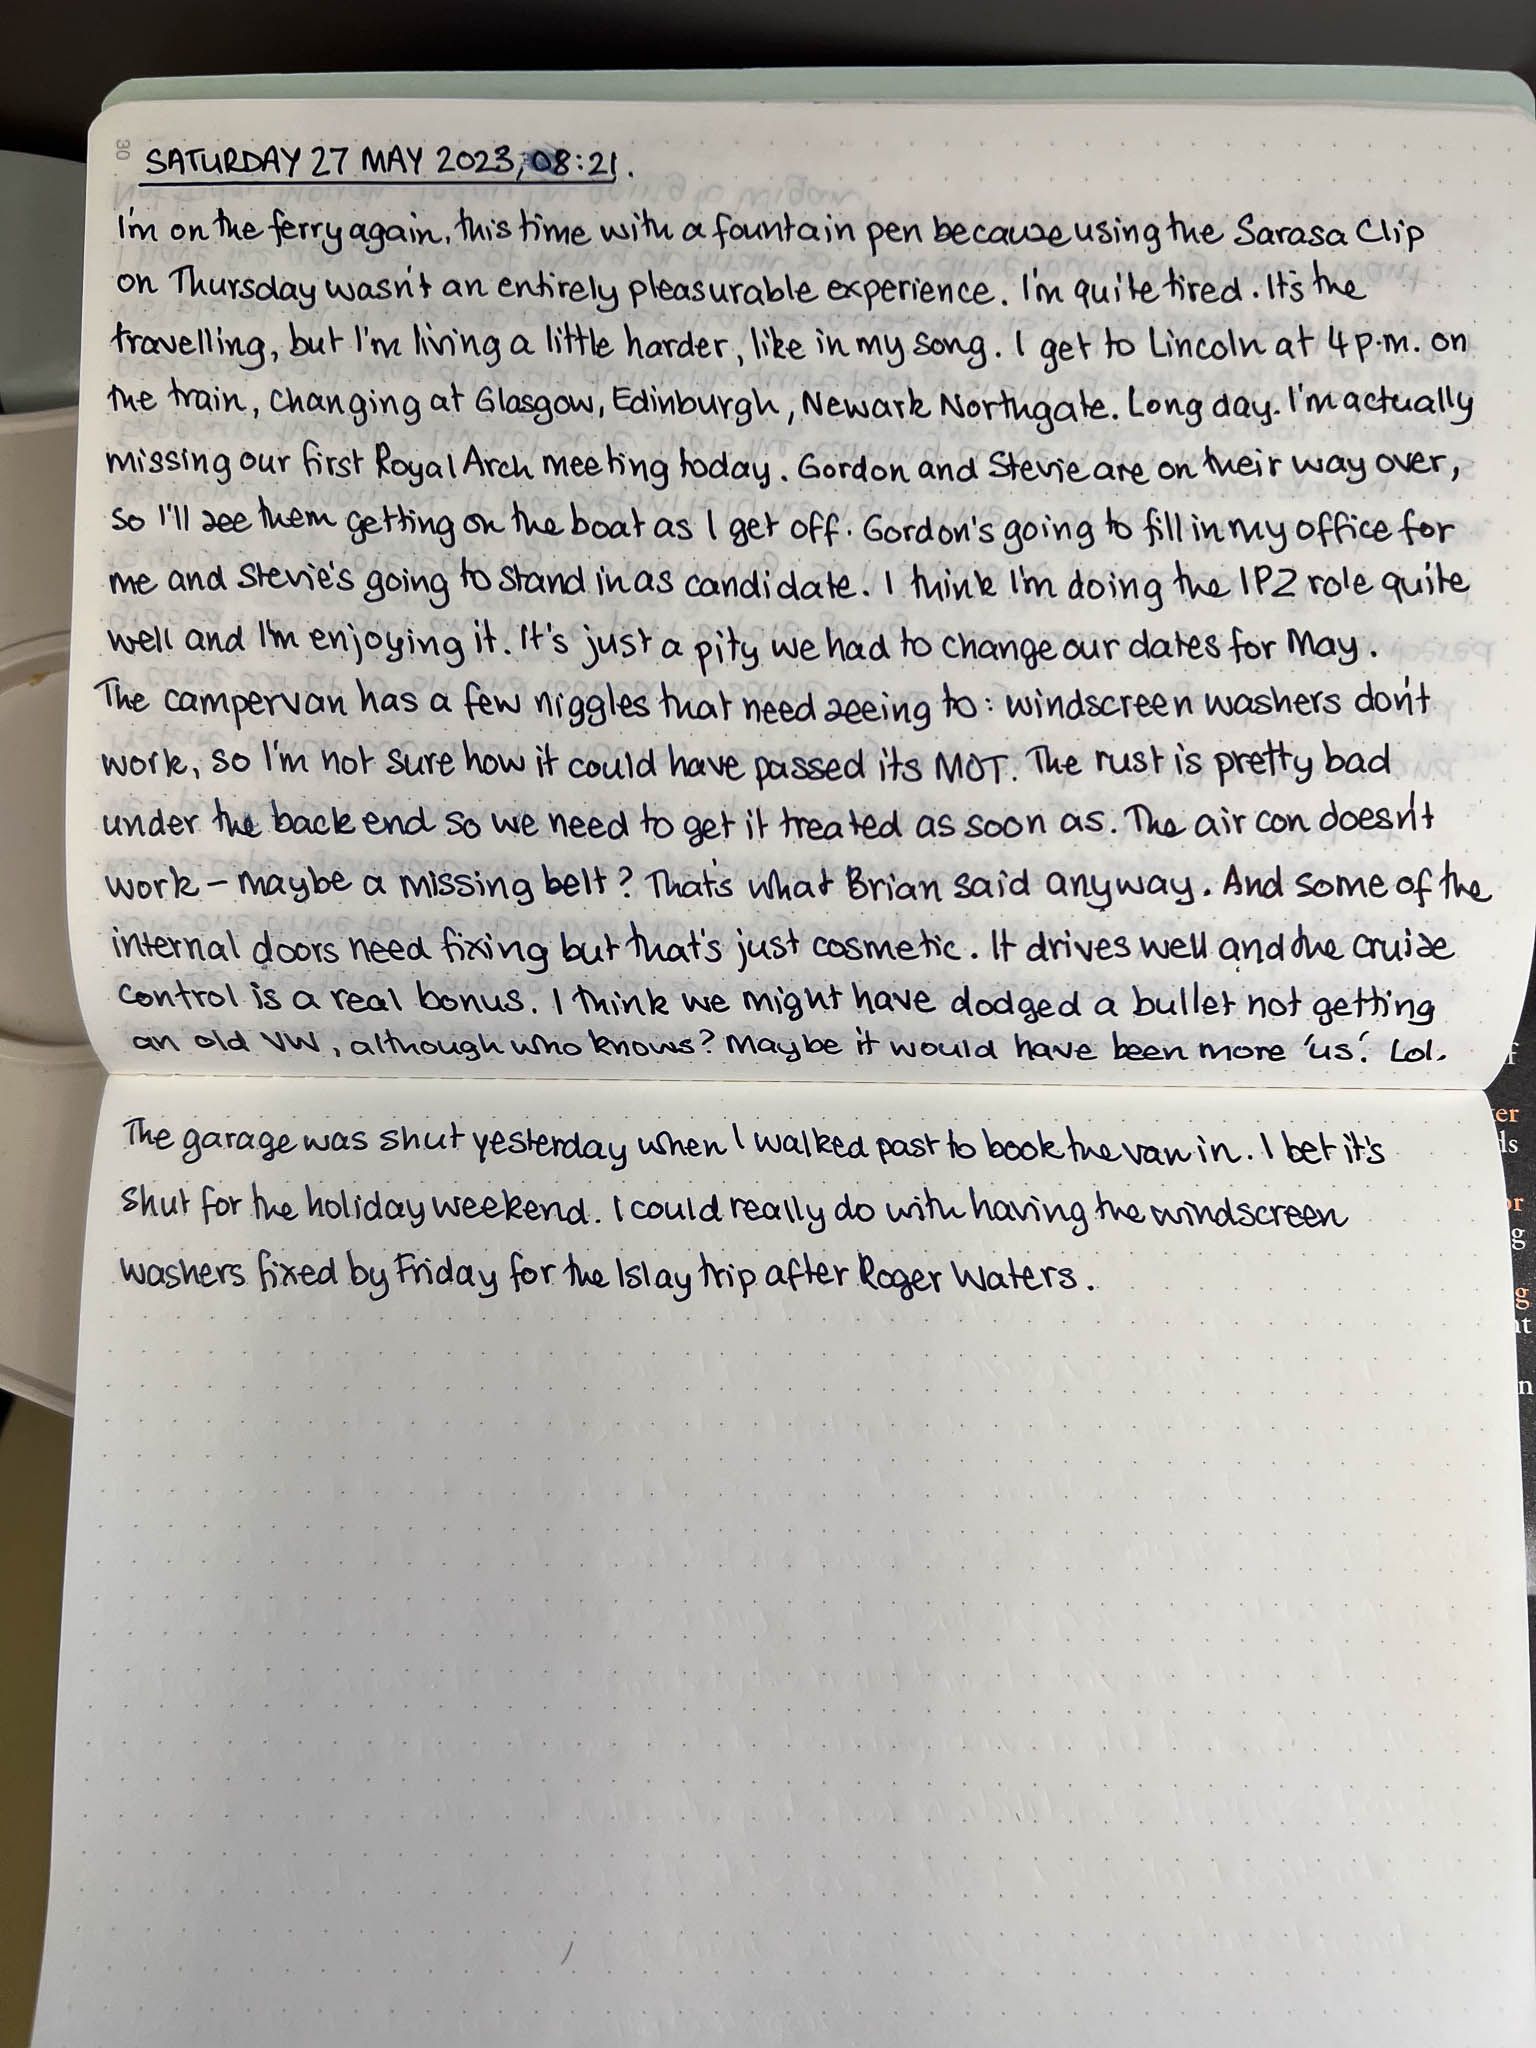 30
SATURDAY 27 MAY 2023, 08:21.
I'm on the ferry again, this time with a fountain pen because using the Sarasa Clip
on Thursday wasn't an entirely pleasurable experience. I'm quite tired. It's the
travelling, but I'm living a little harder, like in my song. I get to Lincoln at 4p.m. on
the train, changing at Glasgow, Edinburgh, Newark Northgate. Long day. I'm actually
missing our first Royal Arch meeting today. Gordon and Stevie are on their way over,
so I'll see them getting on the boat as I get off. Gordon's going to fill in my office for
me and Stevie's going to stand in as candidate. I think I'm doing the IPZ role quite
well and I'm enjoying it. It's just a pity we had to change our dates for May.
The campervan has a few niggles that need seeing to: windscreen washers don't
work, so I'm not sure how it could have passed its MOT. The rust is pretty bad
under the back end so we need to get it treated as soon as. The air con doesn't
work – maybe a missing belt? That's what Brian said anyway. And some of the
internal doors need fixing but that's just cosmetic. It drives well and the cruise
control is a real bonus. I think we might have dodged a bullet not getting
an old VW, although who knows? Maybe it would have been more 'us'. Lol.
The garage was shut yesterday when I walked past to book the van in. I bet it's
shut for the holiday weekend. I could really do with having the windscreen
washers fixed by Friday for the Islay trip after Roger Waters.